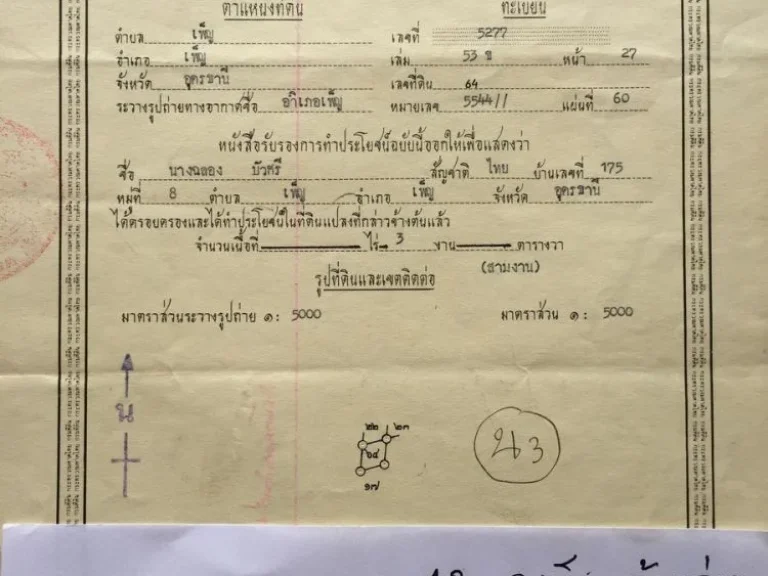 ตำแหน่งที่ดิน ทะเบียน
ตำบล เพ็ญ เลขที่ 5277
อำเภอ เพ็ญ เล่ม 53 ข หน้า 27
จังหวัด อุดรธานี เลขที่ดิน 64
ระวางรูปถ่ายทางอากาศชื่อ อำเภอเพ็ญ หมายเลข 5544 II แผ่นที่ 60
หนังสือรับรองการทำประโยชน์ฉบับนี้ออกให้เพื่อแสดงว่า
ชื่อ นางฉลอง บัวศรี สัญชาติ ไทย บ้านเลขที่ 175
หมู่ที่ 8 ตำบล เพ็ญ อำเภอ เพ็ญ จังหวัด อุดรธานี
ได้ครอบครองและได้ทำประโยชน์ในที่ดินแปลงที่กล่าวข้างต้นแล้ว
จำนวนเนื้อที่ ไร่ 3 งาน ตารางวา
(สามงาน)
รูปที่ดินและเขตติดต่อ
มาตราส่วนระวางรูปถ่าย ๑: 5000 มาตราส่วน ๑: 5000
น
๒๒ ๒๓
๖๔
๑๗
น3